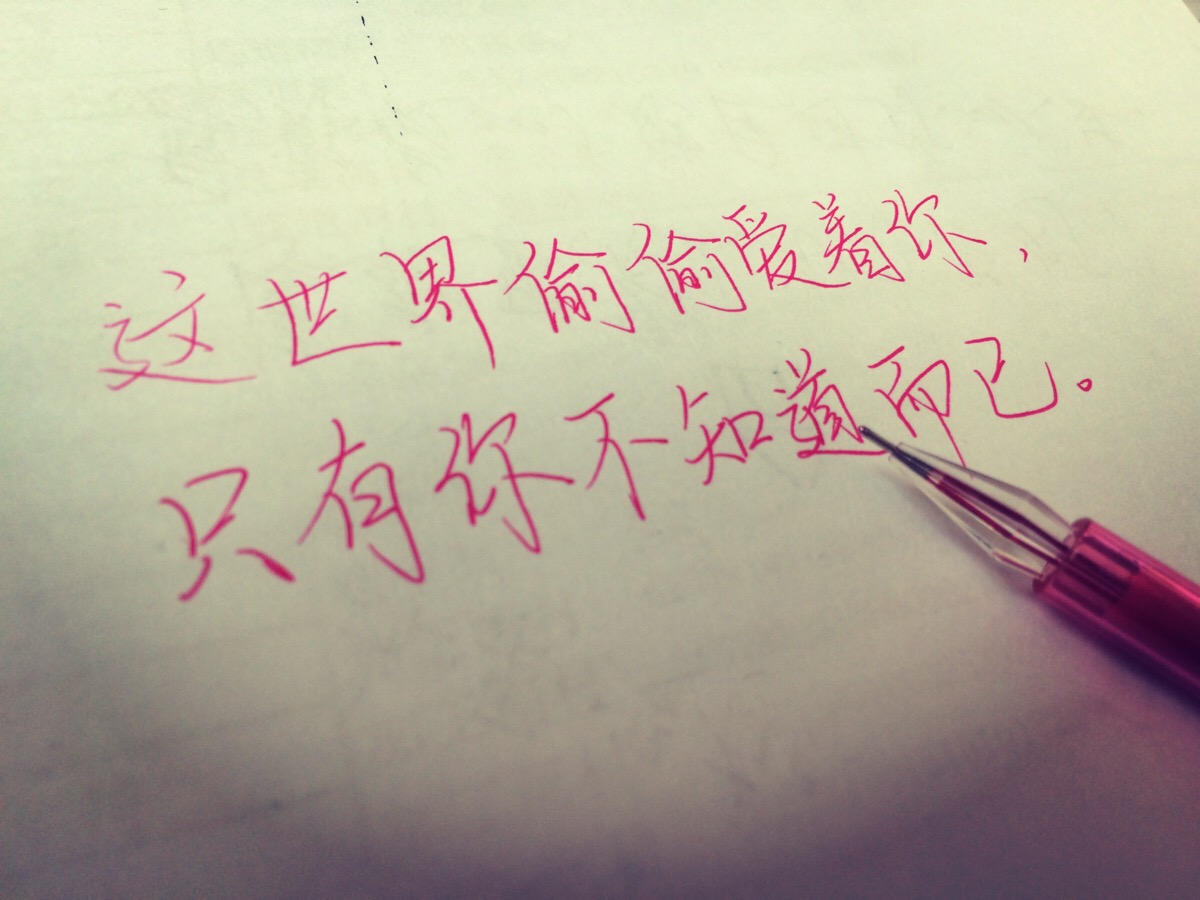 这世界偷偷爱着你，
只有你不知道而已。